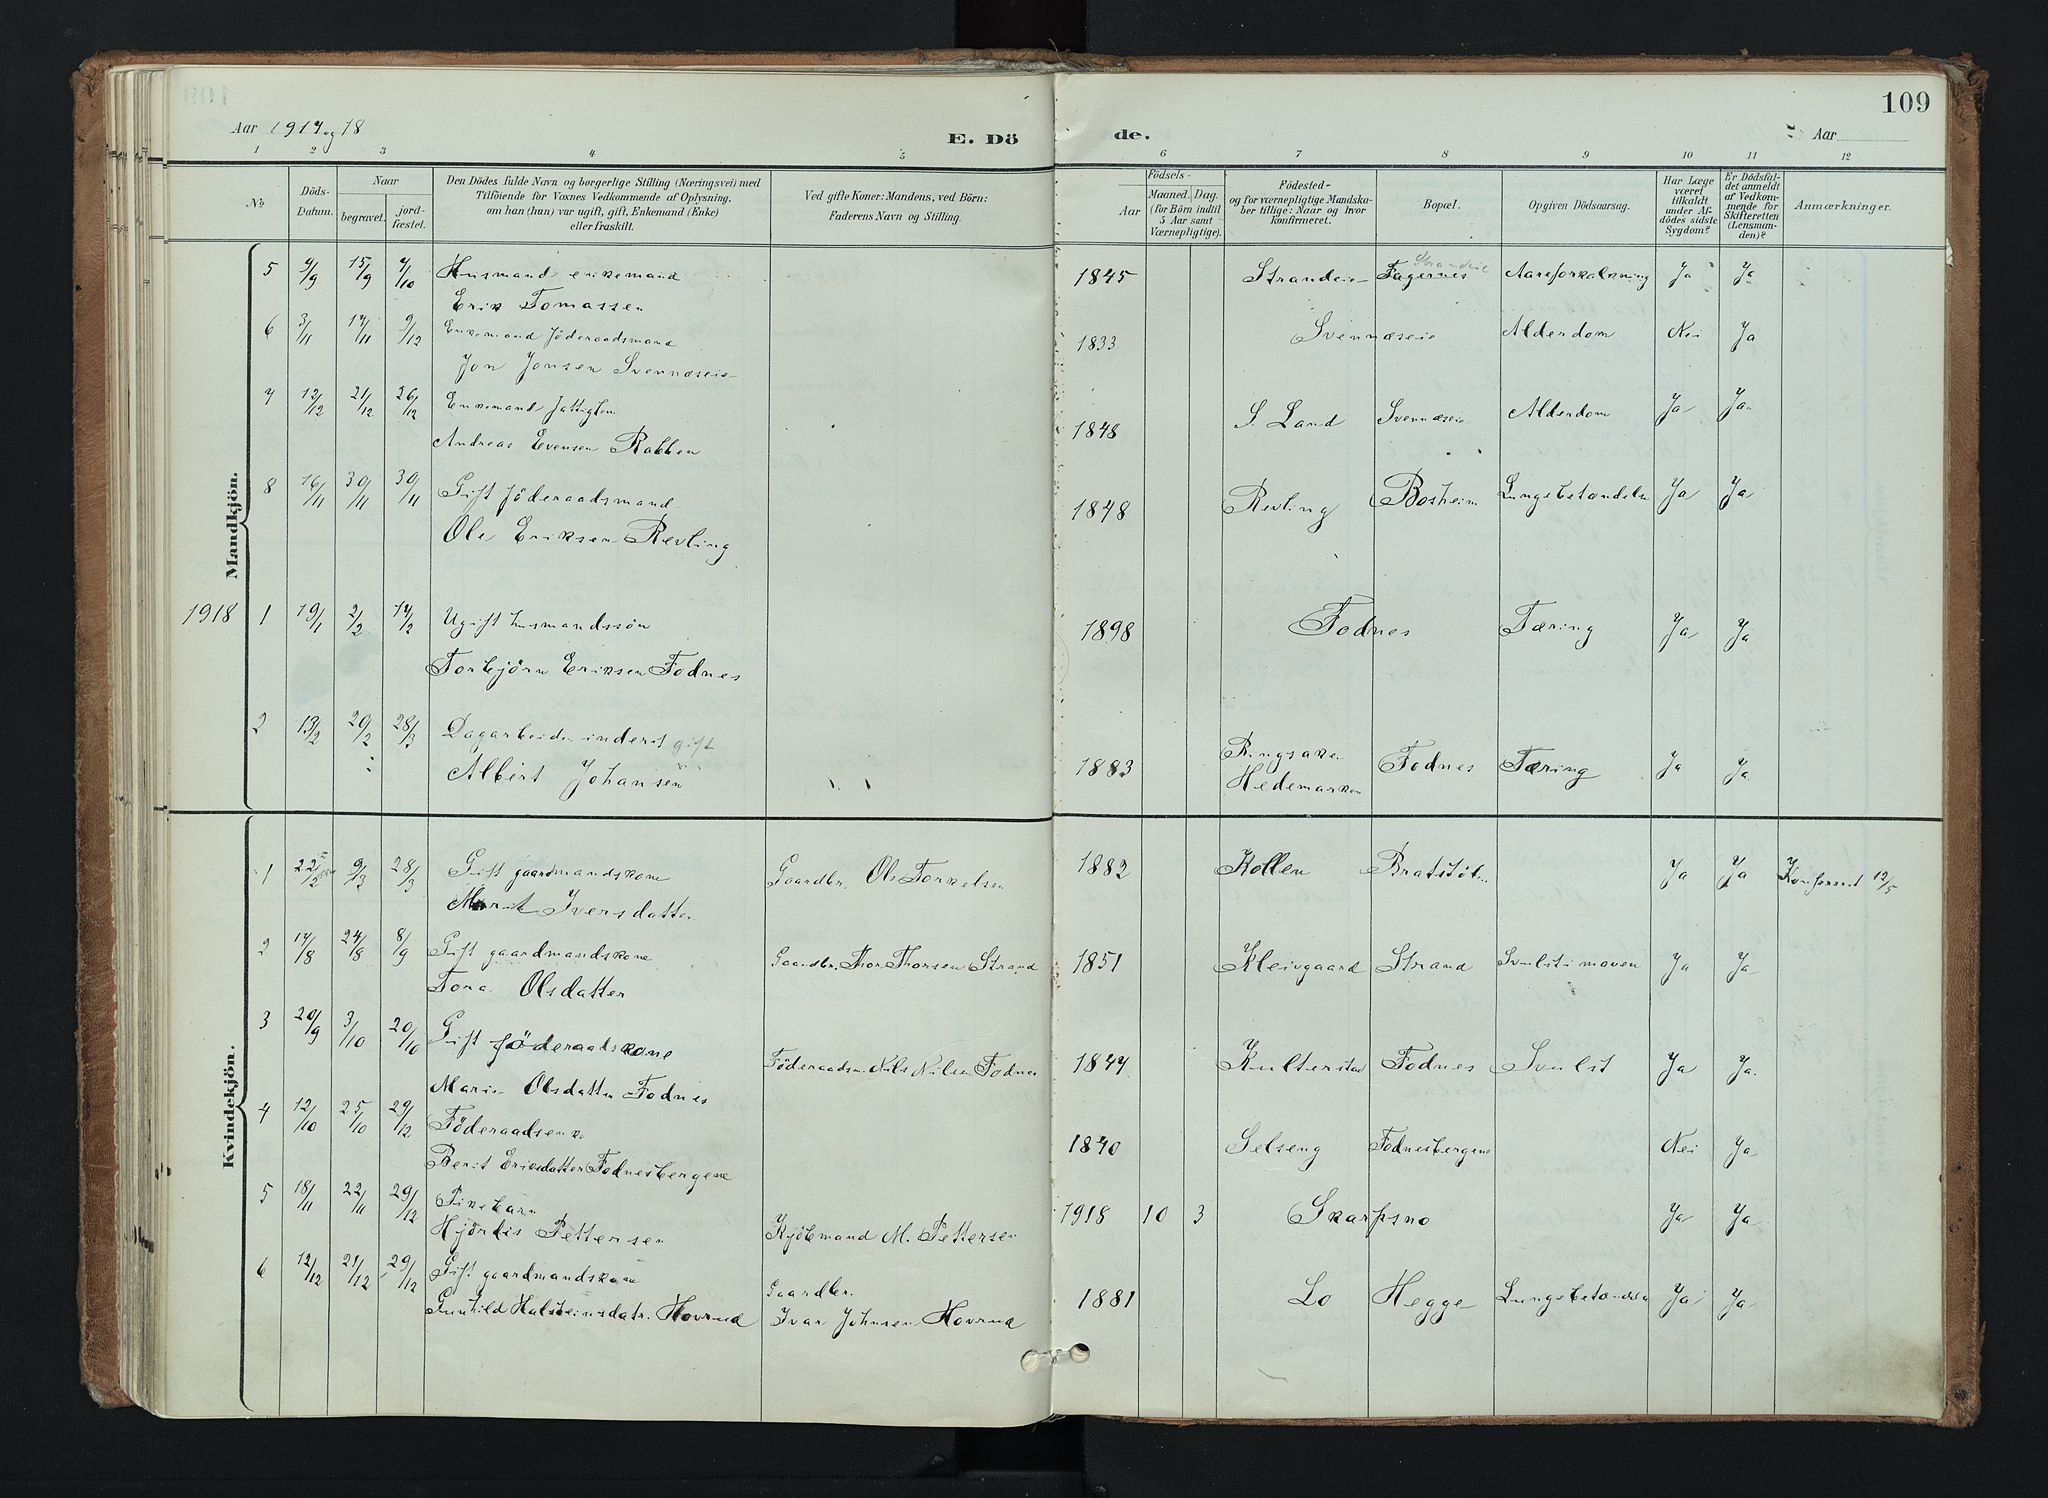 109
Aar 1917 og 18
E. Dö
de.
Aar
1 2 3 4 5 6 7 8 9 10 11 12
№
Döds-
Datum.
Naar
begravet.
jord-
fæstet.
Den Dödes fulde Navn og borgerlige Stilling (Næringsvei) med
Tilföiende for Voxnes Vedkommende af Oplysning,
om han (hun) var ugift, gift, Enkemand (Enke)
eller fraskilt.
Ved gifte Koner: Mandens, ved Börn:
Faderens Navn og Stilling.
Födsels-
Aar
Maaned. Dag.
(for Börn indtil
5 Aar samt
Værnepligtige).
Födested-
og for værnepligtige Mandska-
ber tillige: Naar og hvor
konfirmeret.
Bopæl.
Opgiven Dödsaarsag.
Har Læge
været
tilkaldt
under Af-
dödes sidste
Sygdom?
Er Dödsfal-
det anmeldt
af Vedkom-
mende for
Skifteretten
(Lensman-
den)?
Anmærkninger.
Mandkjön.
5 9/9 15/9 7/10 Husmand enkemand
Erik Tomassen
1845 Strandeie Fagernes Strandeie Aareforkalkning Ja Ja
6 3/11 17/11 9/12 Enkemand Föderaadsmand
Jon Jonsen Svennæseie
1833 Svennæseie Alderdom Nei Ja
7 12/12 21/12 26/12 Enkemand fattiglem
Andreas Evensen Rabben
1848 S. Land Svennæseie Alderdom Ja Ja
8 16/11 30/11 30/11 Gift föderaadsmand
Ole Eriksen Revling
1848 Revling Bosheim Lungebetændelse Ja Ja
1918 1 19/1 2/2 17/2 Ugift husmandssön
Torbjörn Eriksen Fodnes
1898 Fodnes Tæring Ja Ja
2 13/2 20/2 28/3 Dagarbeider inderst gift
Albert Johansen
1883 Ringsaker
Hedemarken Fodnes Tæring Ja Ja
Kvindekjön.
1 22/2 9/3 28/3 Gift gaardmandskone
Marit Iversdatter
Gaardbr. Ole Torkelsen
1882 Kollen Bratstöl Ja Ja 12/5
2 17/8 24/8 8/9 Gift gaardmandskone
Tora Olsdatter
Gaardbr. Thor Thorsen Strand
1851 Kleivgaard Strand Svulst i maven Ja Ja
3 20/9 3/10 20/10 Gift föderaadskone
Marie Olsdatter Fodnes
Föderaadsm. Nils Nilsen Fodnes
1847 Fodnes Svulst Ja Ja
4 12/10 25/10 29/12 Föderaadsenke
Berit Eriksdatter Fodnesbergene
1840 Selseng Fodnesbergene Nei Ja
5 18/11 22/11 29/12 Pikebarn
Hjördis Pettersen
Kjöbmand M. Pettersen
1918 10 3 Skarpsno Ja Ja
6 12/12 21/12 29/12 Gift gaardmandskone
Gunhild Halsteinsdatr. Hovrud
Gaardbr.
Ivar Johnsen Hovrud
1881 Lo Hegge Lungebetændelse Ja Ja